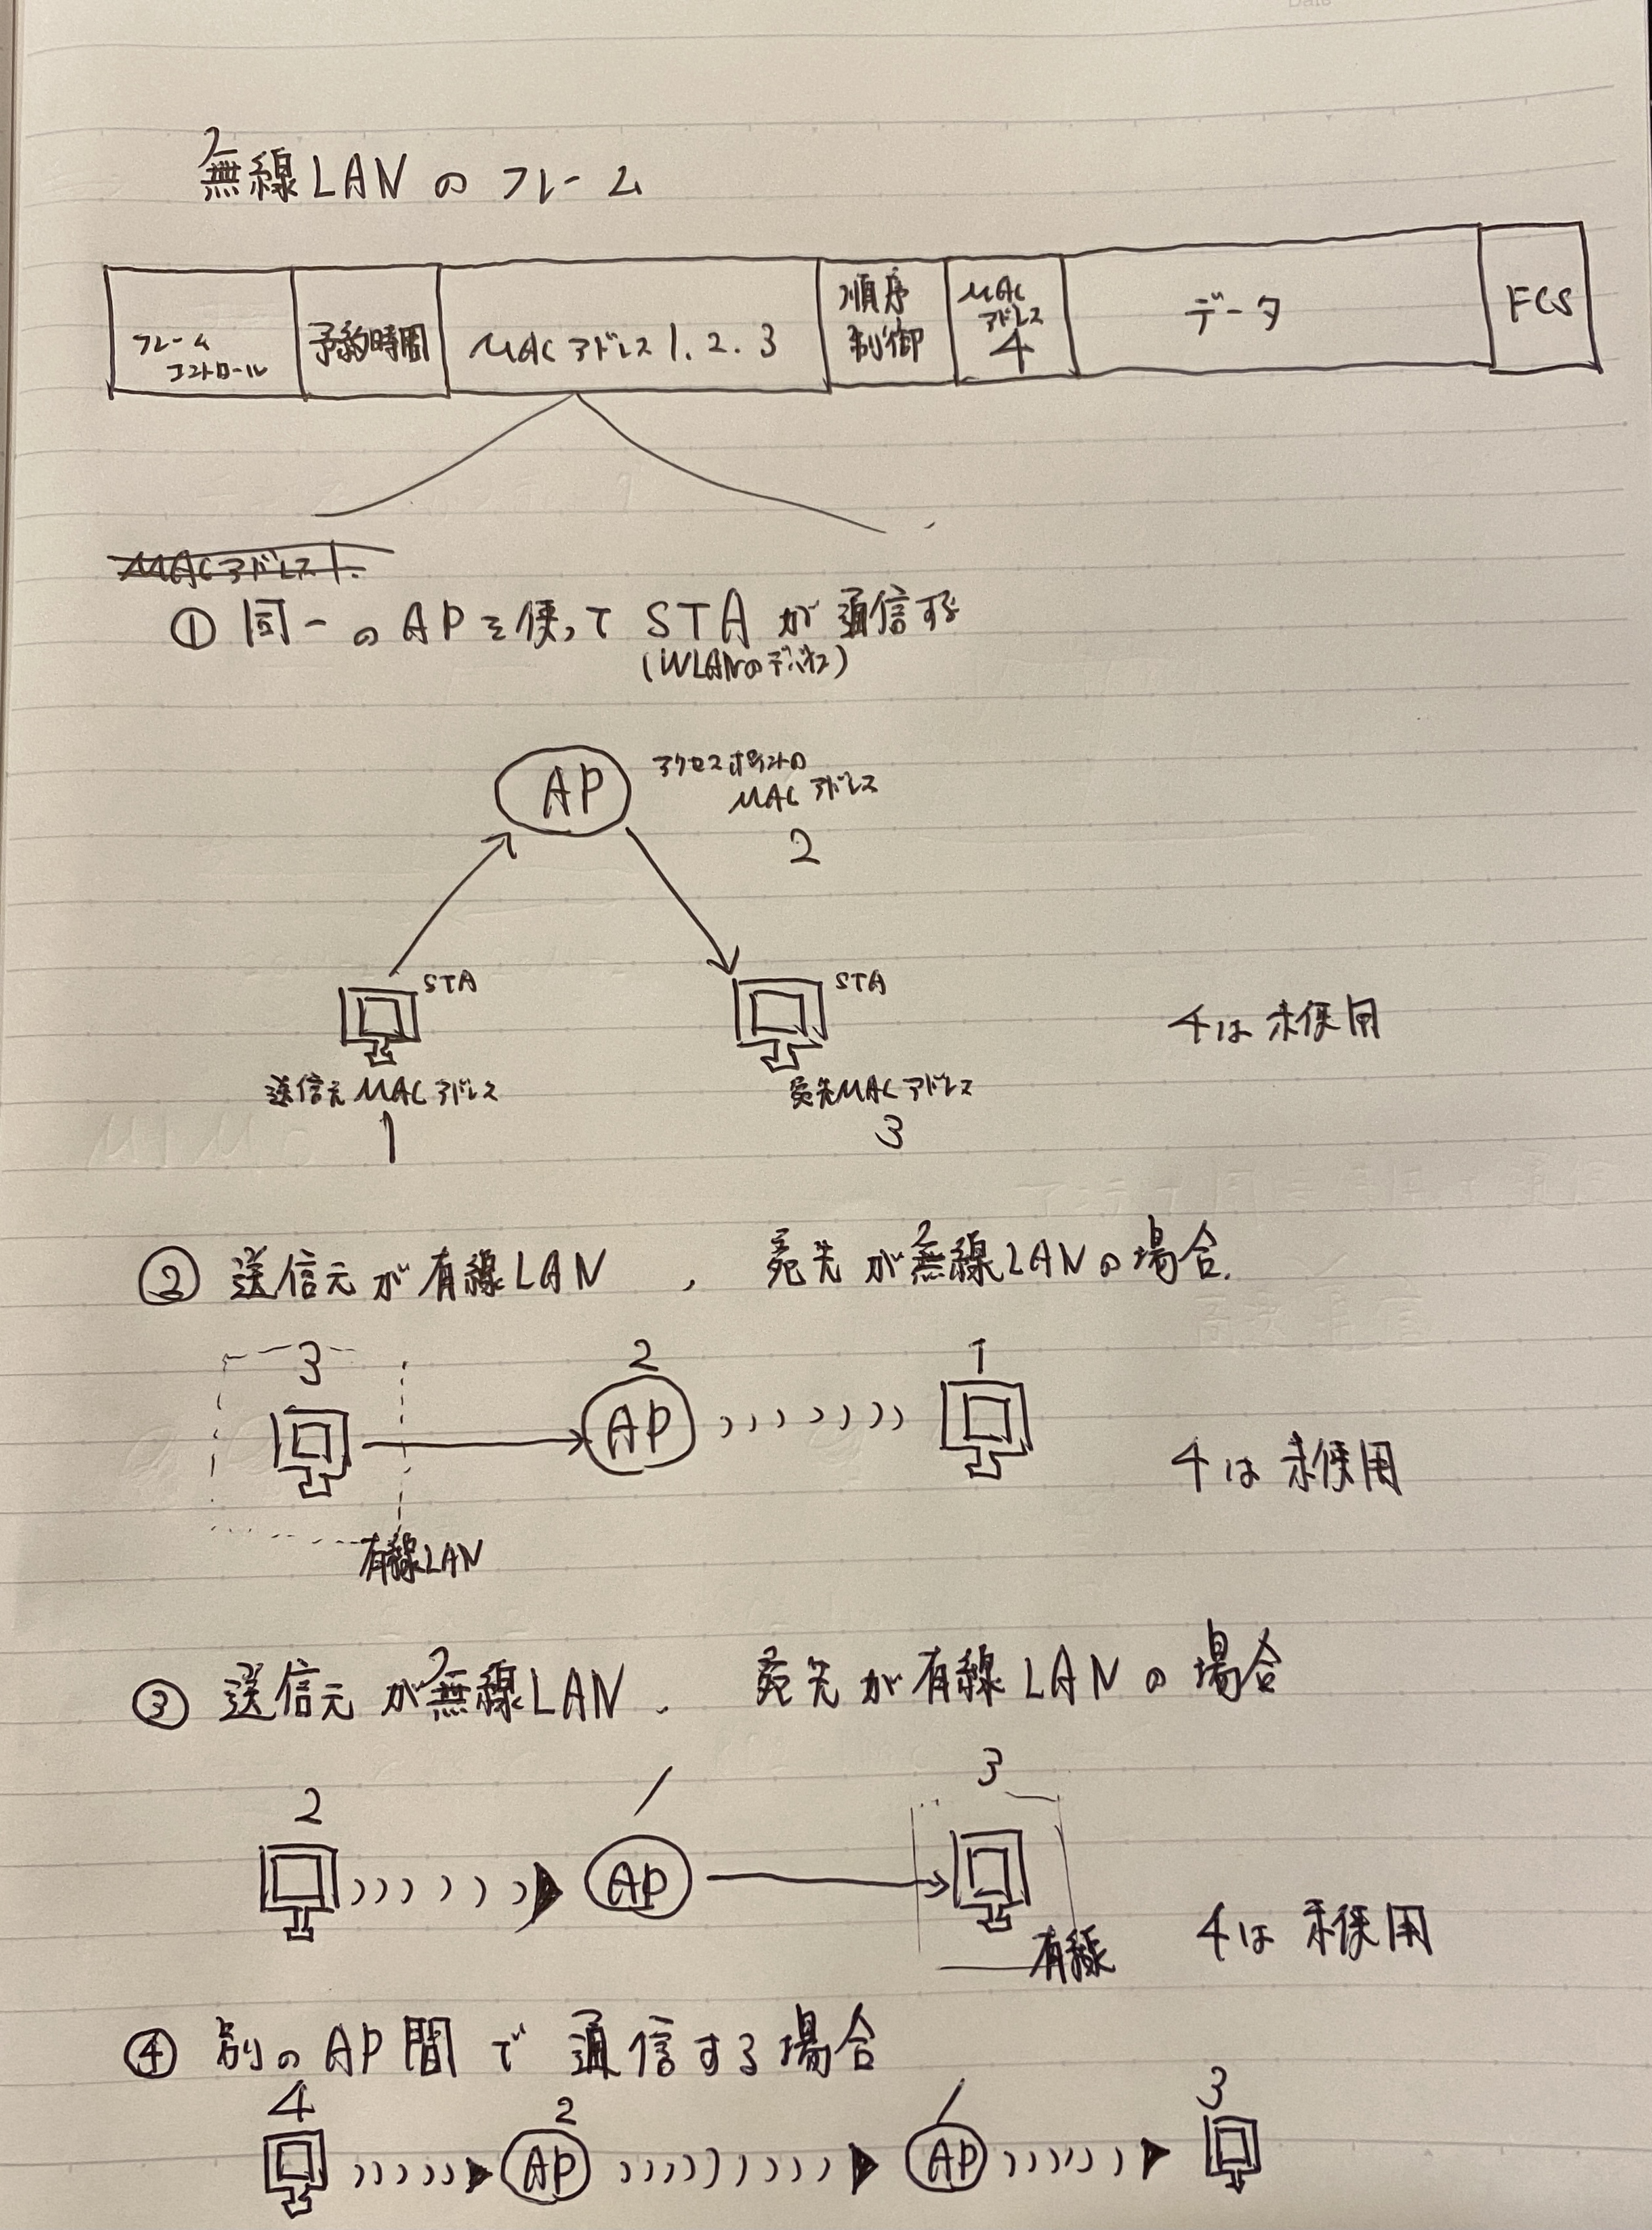 Date
無線LANのフレーム
フレームコントロール 予約時間 MACアドレス1.2.3 順序制御 MACアドレス4 データ FCS
MACアドレス1.
① 同一のAPを使って STAが通信する
(WLANのデバイス)
AP アクセスポイントの
MACアドレス
2
STA STA
4は未使用
送信元MACアドレス 宛先MACアドレス
1 3
② 送信元が有線LAN , 宛先が無線LANの場合.
3 2 1
AP
4は未使用
有線LAN
③ 送信元が無線LAN. 宛先が有線LANの場合
2 1 3
AP
有線 4は未使用
④ 別のAP間で通信する場合
4 2 1 3
AP AP